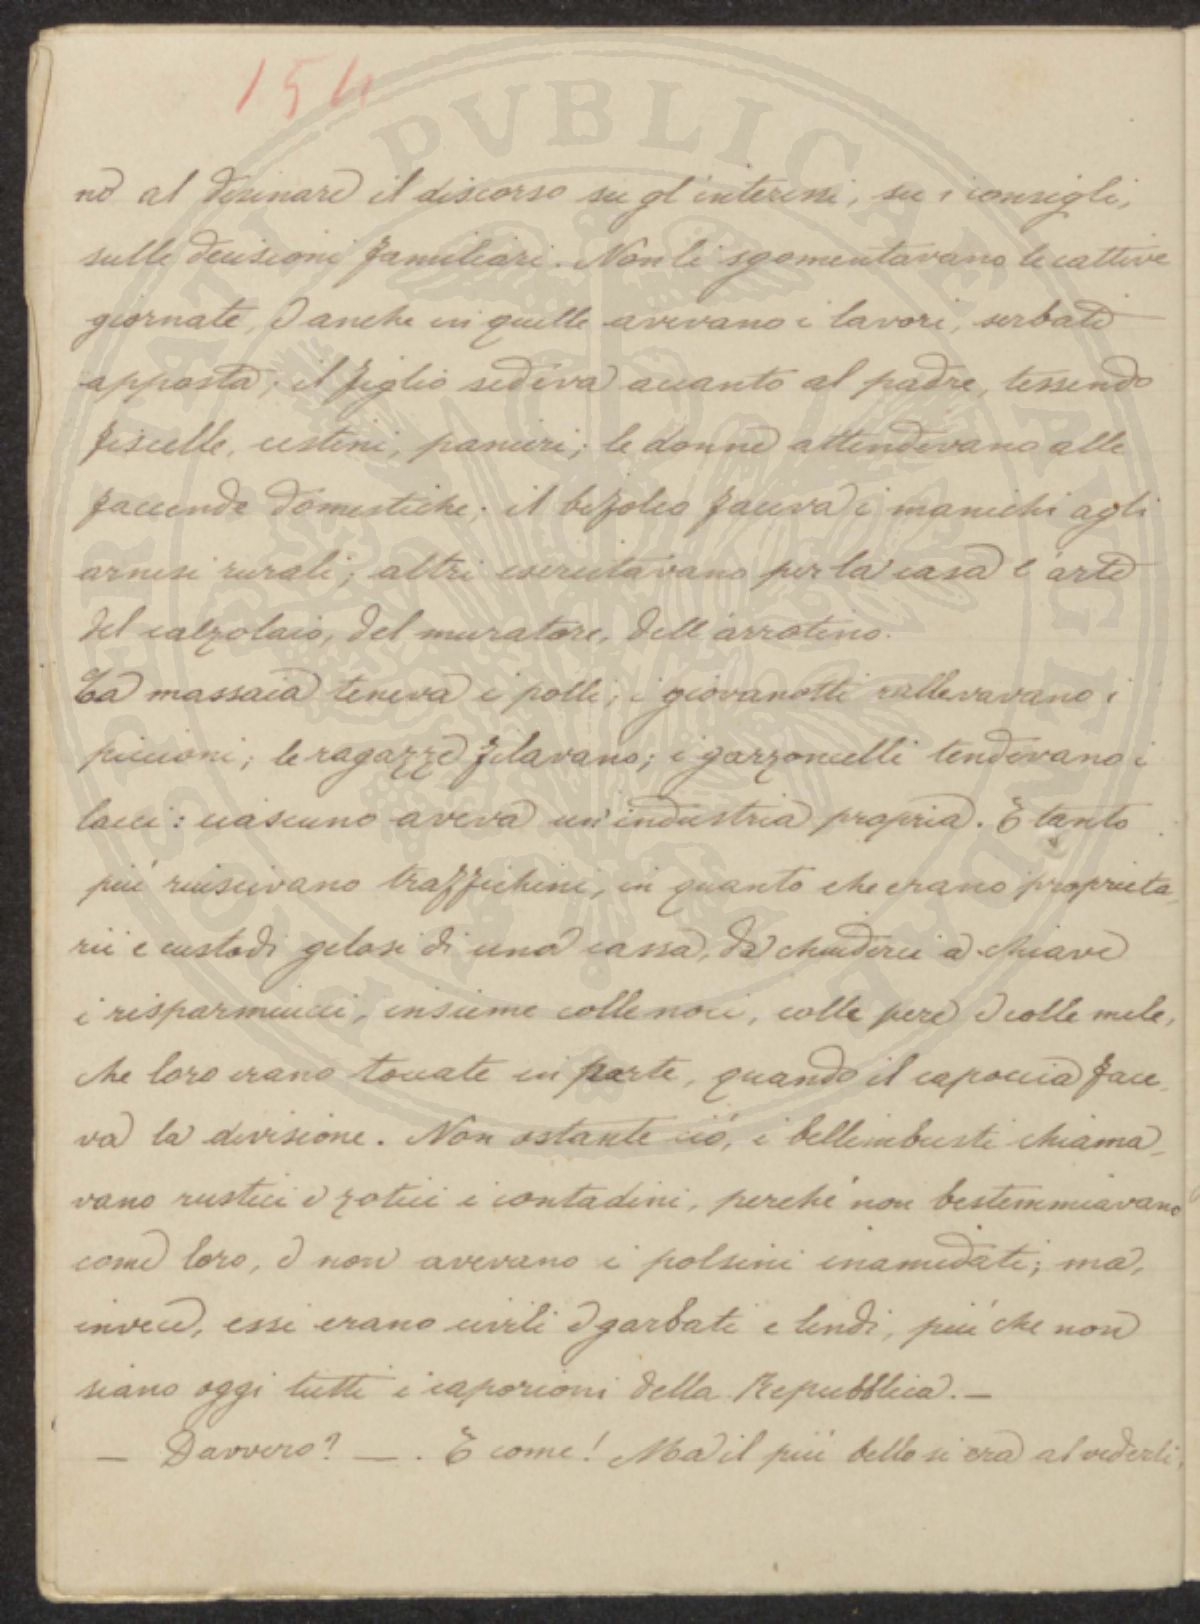 154
no al desinare il discorso su gl'interessi, su i consigli,
sulle decisioni familiari. Non li sgomentavano le cattive
giornate, e anche in quelle avevano i lavori, serbati
apposta; il figlio sedeva accanto al padre, tessendo
fiscelle, cestini, panieri; le donne attendevano alle
faccende domestiche; il bifolco faceva i manichi agli
arnesi rurali; altri esercitavano per la casa l'arte
del calzolaio, del muratore, dell'arrotino.
La massaia teneva i polli; i giovanotti rallevavano i
piccioni; le ragazze filavano; i garzoncelli tendevano i
lacci: ciascuno aveva un'industria propria. E tanto
più riuscivano traffichini, in quanto che erano proprieta-
rii e custodi gelosi di una cassa, da chiuderci a chiave
i risparmiucci, insieme colle noci, colle pere e colle mele,
che loro erano toccate in parte, quando il capoccia face-
va la divisione. Non ostante ciò, i bellimbusti chiama-
vano rustici e zotici i contadini, perché non bestemmiavano
come loro, e non avevano i polsini inamidati; ma,
invece, essi erano civili e garbati e lindi, più che non
siano oggi tutti i caporioni della Repubblica. —
— Davvero? — . E come! Ma il più bello si era al vederli,
PVBLICAE